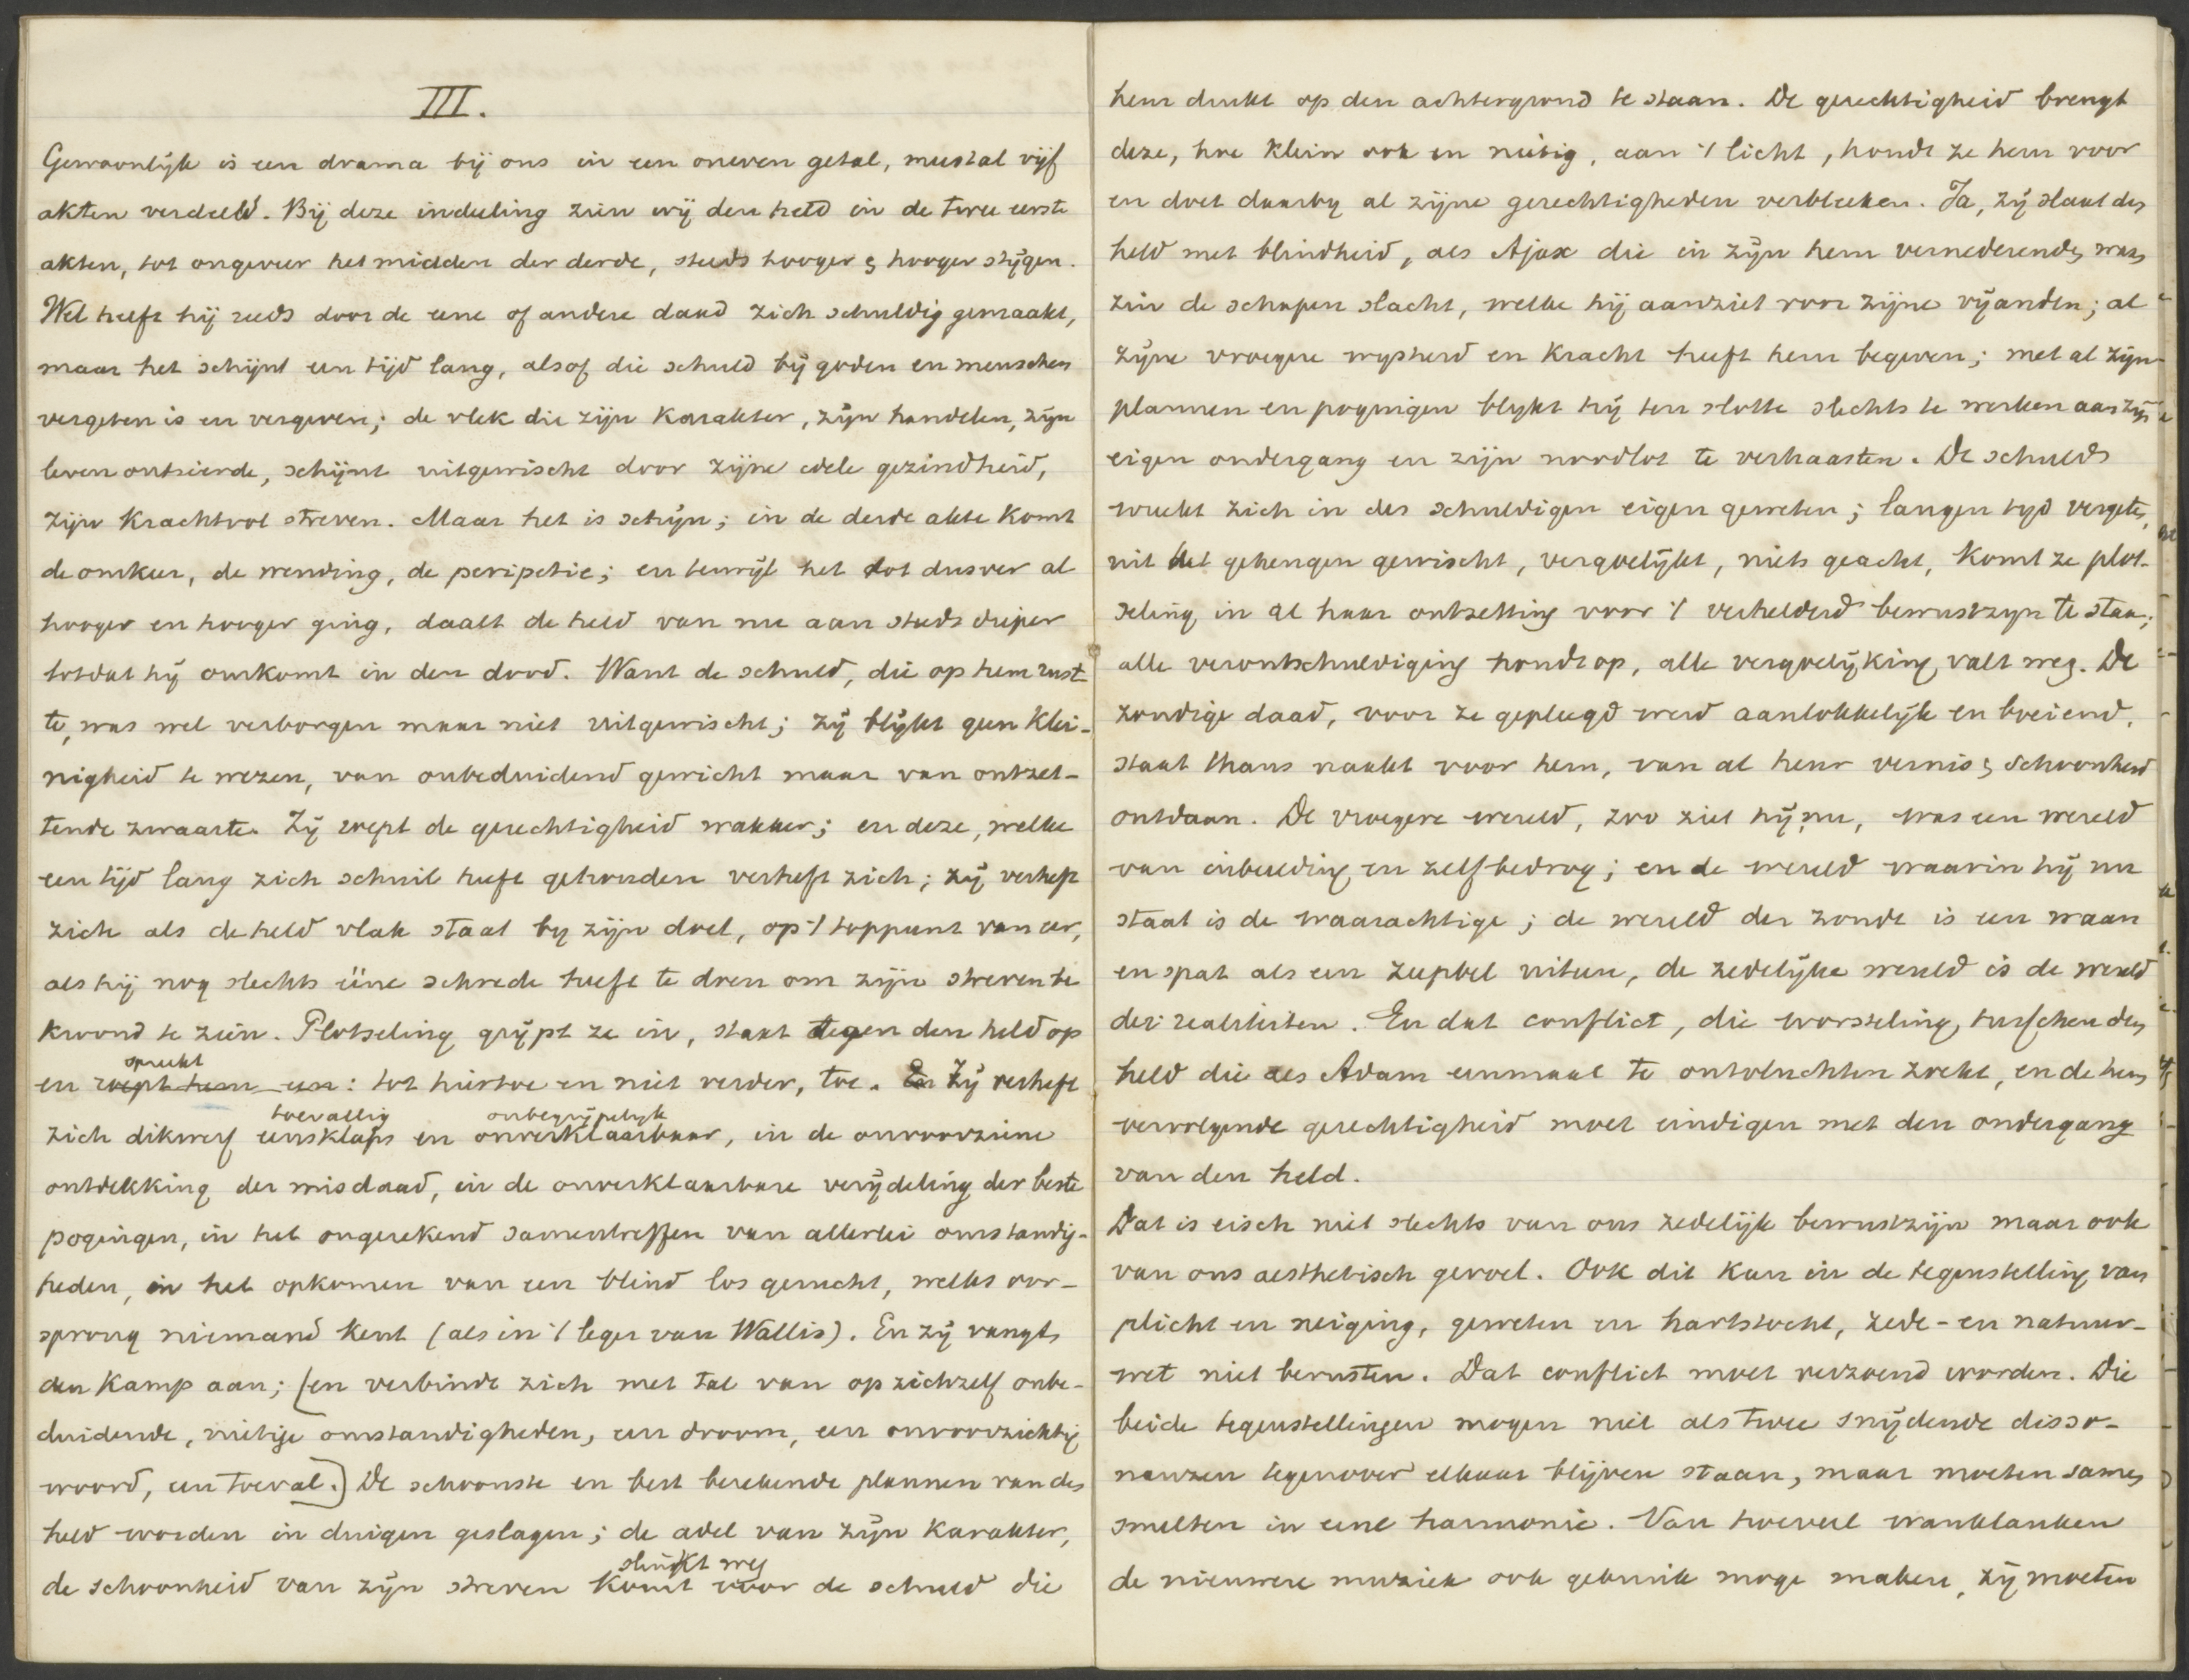 III.
Gewoonlijk is een drama bij ons in een oneven getal, meestal vijf
akten verdeeld. Bij deze indeeling zien wij den held in de twee eerste
akten, tot ongeveer het midden der derde, steeds hooger & hooger stijgen.
Wel heeft hij reeds door de eene of andere daad zich schuldig gemaakt,
maar het schijnt een tijd lang, alsof die schuld bij goden en menschen
vergeten is en vergeven; de vlek die zijn karakter, zijn handelen, zijn
leven ontsierde, schijnt uitgewischt door zijne edele gezindheid,
zijn krachtvol streven. Maar het is schijn; in de derde akte komt
de omkeer, de wending, de peripetie; en terwijl het tot dusver al
hooger en hooger ging, daalt de held van nu aan steeds dieper
totdat hij omkomt in den dood. Want de schuld, die op hem rust-
te, was wel verborgen maar niet uitgewischt; zij blijkt geen klei-
nigheid te wezen, van onbeduidend gewicht maar van ontzet-
tende zwaarte. Zij roept de gerechtigheid wakker; en deze, welke
een tijd lang zich schuil heeft gehouden verheft zich; zij verheft
zich als de held vlak staat by zijn doel, op 't toppunt van eer,
als hij nog slechts ééne schrede heeft te doen om zijn streven be
kroond te zien. Plotseling grijpt ze in, staat tegen den held op
spreekt
en roept hem een: tot hiertoe en niet verder, toe. En Zij verheft
toevallig onbegrijpelijk
zich dikwerf eensklaps en onverklaarbaar, in de onvoorziene
ontdekking der misdaad, in de onverklaarbare verijdeling der beste
pogingen, in het ongerekend samentreffen van allerlei omstandig-
heden, in het opkomen van een blind los gerucht, welks oor-
sprong niemand kent (als in 't leger van Wallis). En zij vangt
den kamp aan; (en verbindt zich met tal van op zichzelf onbe-
duidende, nietige omstandigheden, een droom, een onvoorzichtig
woord, een toeval.) De schoonste en best berekende plannen van den
held worden in duigen geslagen; de adel van zijn karakter,
slinkt weg
de schoonheid van zijn streven komt voor de schuld die
hem dunkt op den achtergrond te staan. De gerechtigheid brengt
deze, hoe klein ook en nietig, aan 't licht, houdt ze hem voor
en doet daarby al zijne gerechtigheden verbleeken. Ja, zij slaat den
held met blindheid, als Ajax die in zijn hem vernederenden waan
zin de schapen slacht, welke hij aanziet voor zijne vijanden; al
zijne vroegere wysheid en kracht heeft hem begeven; met al zijn
plannen en pogingen blykt hij ten slotte slechts te werken aan zijn
eigen ondergang en zijn noodlot te verhaasten. De schuld
wreekt zich in des schuldigen eigen geweten; langen tyd vergeten,
uit het geheugen gewischt, vergoelijkt, niets geacht, komt ze plot-
seling in al haar ontzetting voor 't verhelderd bewustzyn te staan;
alle verontschuldiging houdt op, alle vergoelijking valt weg. De
zondige daad, voor ze gepleegd werd aanlokkelijk en boeiend,
staat thans naakt voor hem, van al heur vernis & schoonheid
ontdaan. De vroegere wereld, zoo ziet hij nu, was een wereld
van inbeelding en zelfbedrog; en de wereld waarin hij nu
staat is de waarachtige; de wereld der zonde is een waan
en spat als een zeepbel uiteen, de zedelijke wereld is de wereld
der realiteiten. En dat conflict, die worsteling, tusschen den
held die als Adam eenmaal te ontvluchten zoekt, en de hem
vervolgende gerechtigheid moet eindigen met den ondergang
van den held.
Dat is eisch niet slechts van ons zedelijk bewustzijn maar ook
van ons aesthetisch gevoel. Ook dit kan in de tegenstelling van
plicht en neiging, geweten en hartstocht, zede- en natuur-
wet niet berusten. Dat conflict moet verzoend worden. Die
beide tegenstellingen mogen niet als twee snijdende disso-
nanzen tegenover elkaar blijven staan, maar moeten samen
smelten in eene harmonie. Van hoeveel wanklanken
de nieuwere muziek ook gebruik moge maken, zij moeten